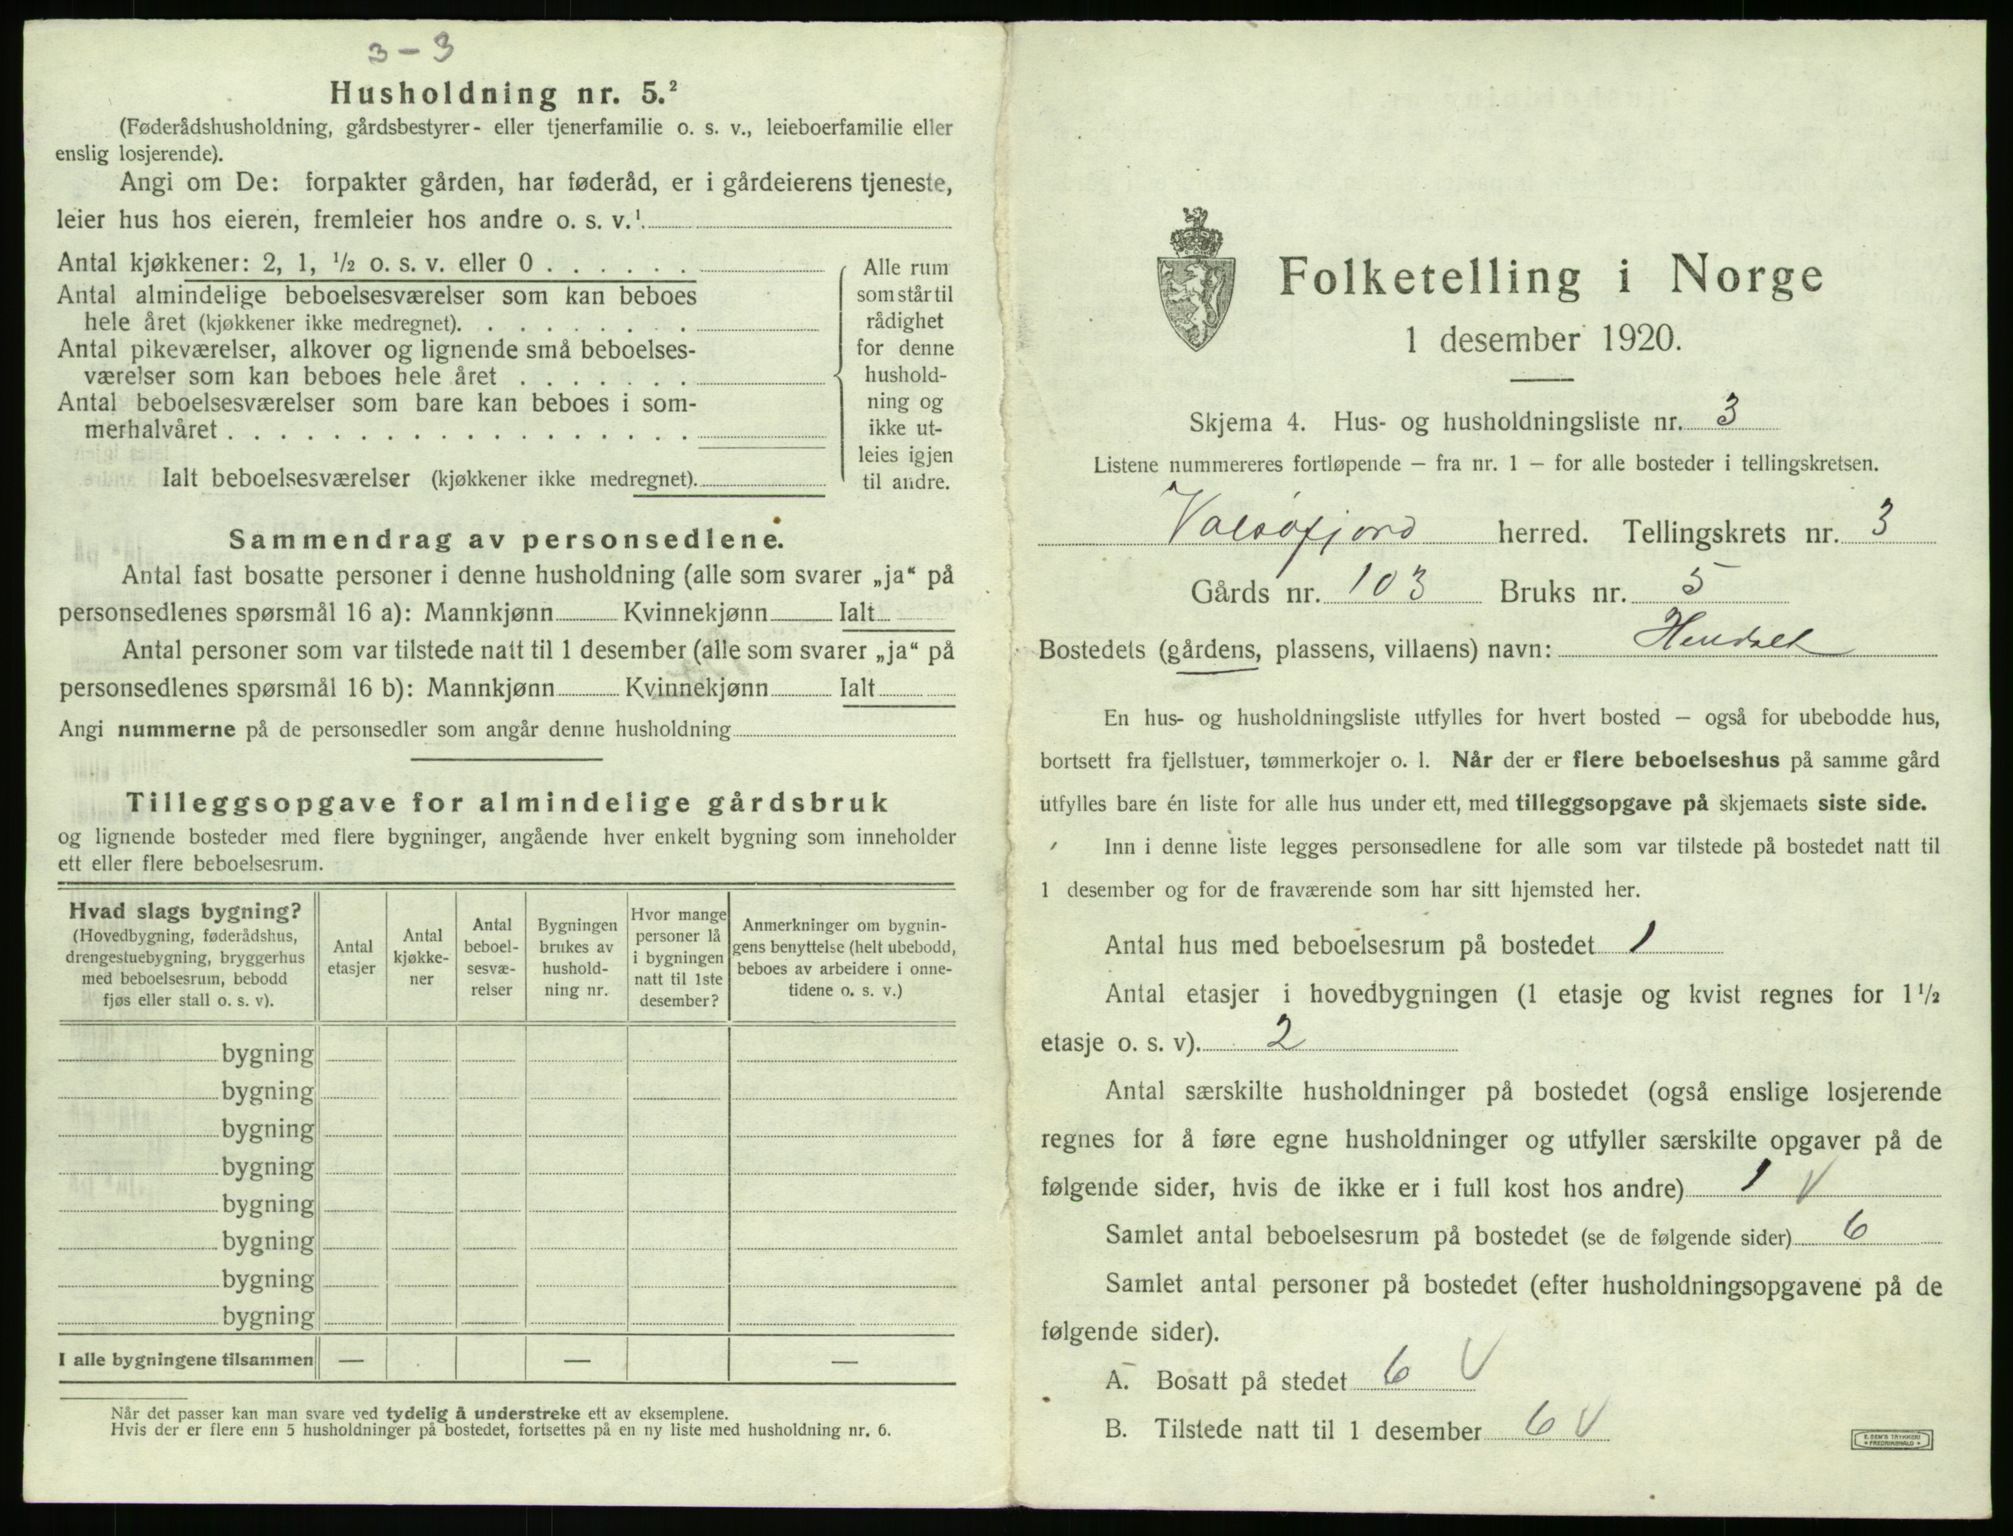 3 – 3
Husholdning nr. 5.²
(Føderådshusholdning, gårdsbestyrer- eller tjenerfamilie o. s. v., leieboerfamilie eller
enslig losjerende).
Angi om De: forpakter gården, har føderåd, er i gårdeierens tjeneste,
leier hus hos eieren, fremleier hos andre o. s. v.¹
Antal kjøkkener: 2, 1, ½ o. s. v. eller 0 . . . . . .
Antal almindelige beboelsesværelser som kan beboes
hele året (kjøkkener ikke medregnet). . . . . . . . .
Antal pikeværelser, alkover og lignende små beboelses-
værelser som kan beboes hele året . . . . . . .
Antal beboelsesværelser som bare kan beboes i som-
merhalvåret . . . . . . . . . . . . . . . . . .
Ialt beboelsesværelser (kjøkkener ikke medregnet).
Alle rum
som står til
rådighet
for denne
hushold-
ning og
ikke ut-
leies igjen
til andre.
Sammendrag av personsedlene.
Antal fast bosatte personer i denne husholdning (alle som svarer „ja“ på
personsedlenes spørsmål 16 a): Mannkjønn Kvinnekjønn Ialt
Antal personer som var tilstede natt til 1 desember (alle som svarer „ja“ på
personsedlenes spørsmål 16 b): Mannkjønn Kvinnekjønn Ialt
Angi nummerne på de personsedler som angår denne husholdning
Tilleggsopgave for almindelige gårdsbruk
og lignende bosteder med flere bygninger, angående hver enkelt bygning som inneholder
ett eller flere beboelsesrum.
Hvad slags bygning?
(Hovedbygning, føderådshus,
drengestuebygning, bryggerhus
med beboelsesrum, bebodd
fjøs eller stall o. s. v).
Antal
etasjer
Antal
kjøkke-
ner
Antal
beboel-
sesvæ-
relser
Bygningen
brukes av
hushold-
ning nr.
Hvor mange
personer lå
i bygningen
natt til 1ste
desember?
Anmerkninger om bygnin-
gens benyttelse (helt ubebodd,
beboes av arbeidere i onne-
tidene o. s. v.)
bygning
bygning
bygning
bygning
bygning
bygning
bygning
bygning
I alle bygningene tilsammen — — —
Når det passer kan man svare ved tydelig å understreke ett av eksemplene.
Hvis der er flere enn 5 husholdninger på bostedet, fortsettes på en ny liste med husholdning nr. 6.
Folketelling i Norge
1 desember 1920.
Skjema 4. Hus- og husholdningsliste nr. 3
Listene nummereres fortløpende – fra nr. 1 – for alle bosteder i tellingskretsen.
Valsøfjord herred. Tellingskrets nr. 3
Gårds nr. 103 Bruks nr. 5
Bostedets (gårdens, plassens, villaens) navn:
En hus- og husholdningsliste utfylles for hvert bosted – også for ubebodde hus,
bortsett fra fjellstuer, tømmerkojer o. l. Når der er flere beboelseshus på samme gård
utfylles bare én liste for alle hus under ett, med tilleggsopgave på skjemaets siste side.
Inn i denne liste legges personsedlene for alle som var tilstede på bostedet natt til
1 desember og for de fraværende som har sitt hjemsted her.
Antal hus med beboelsesrum på bostedet 1
Antal etasjer i hovedbygningen (1 etasje og kvist regnes for 1½
etasje o. s. v). 2
Antal særskilte husholdninger på bostedet (også enslige losjerende
regnes for å føre egne husholdninger og utfyller særskilte opgaver på de
følgende sider, hvis de ikke er i full kost hos andre) 1 V
Samlet antal beboelsesrum på bostedet (se de følgende sider) 6
Samlet antal personer på bostedet (efter husholdningsopgavene på de
følgende sider).
A. Bosatt på stedet 6 V
B. Tilstede natt til 1 desember 6 V
E. SEM'S TRYKKERI
FREDRIKSHALD